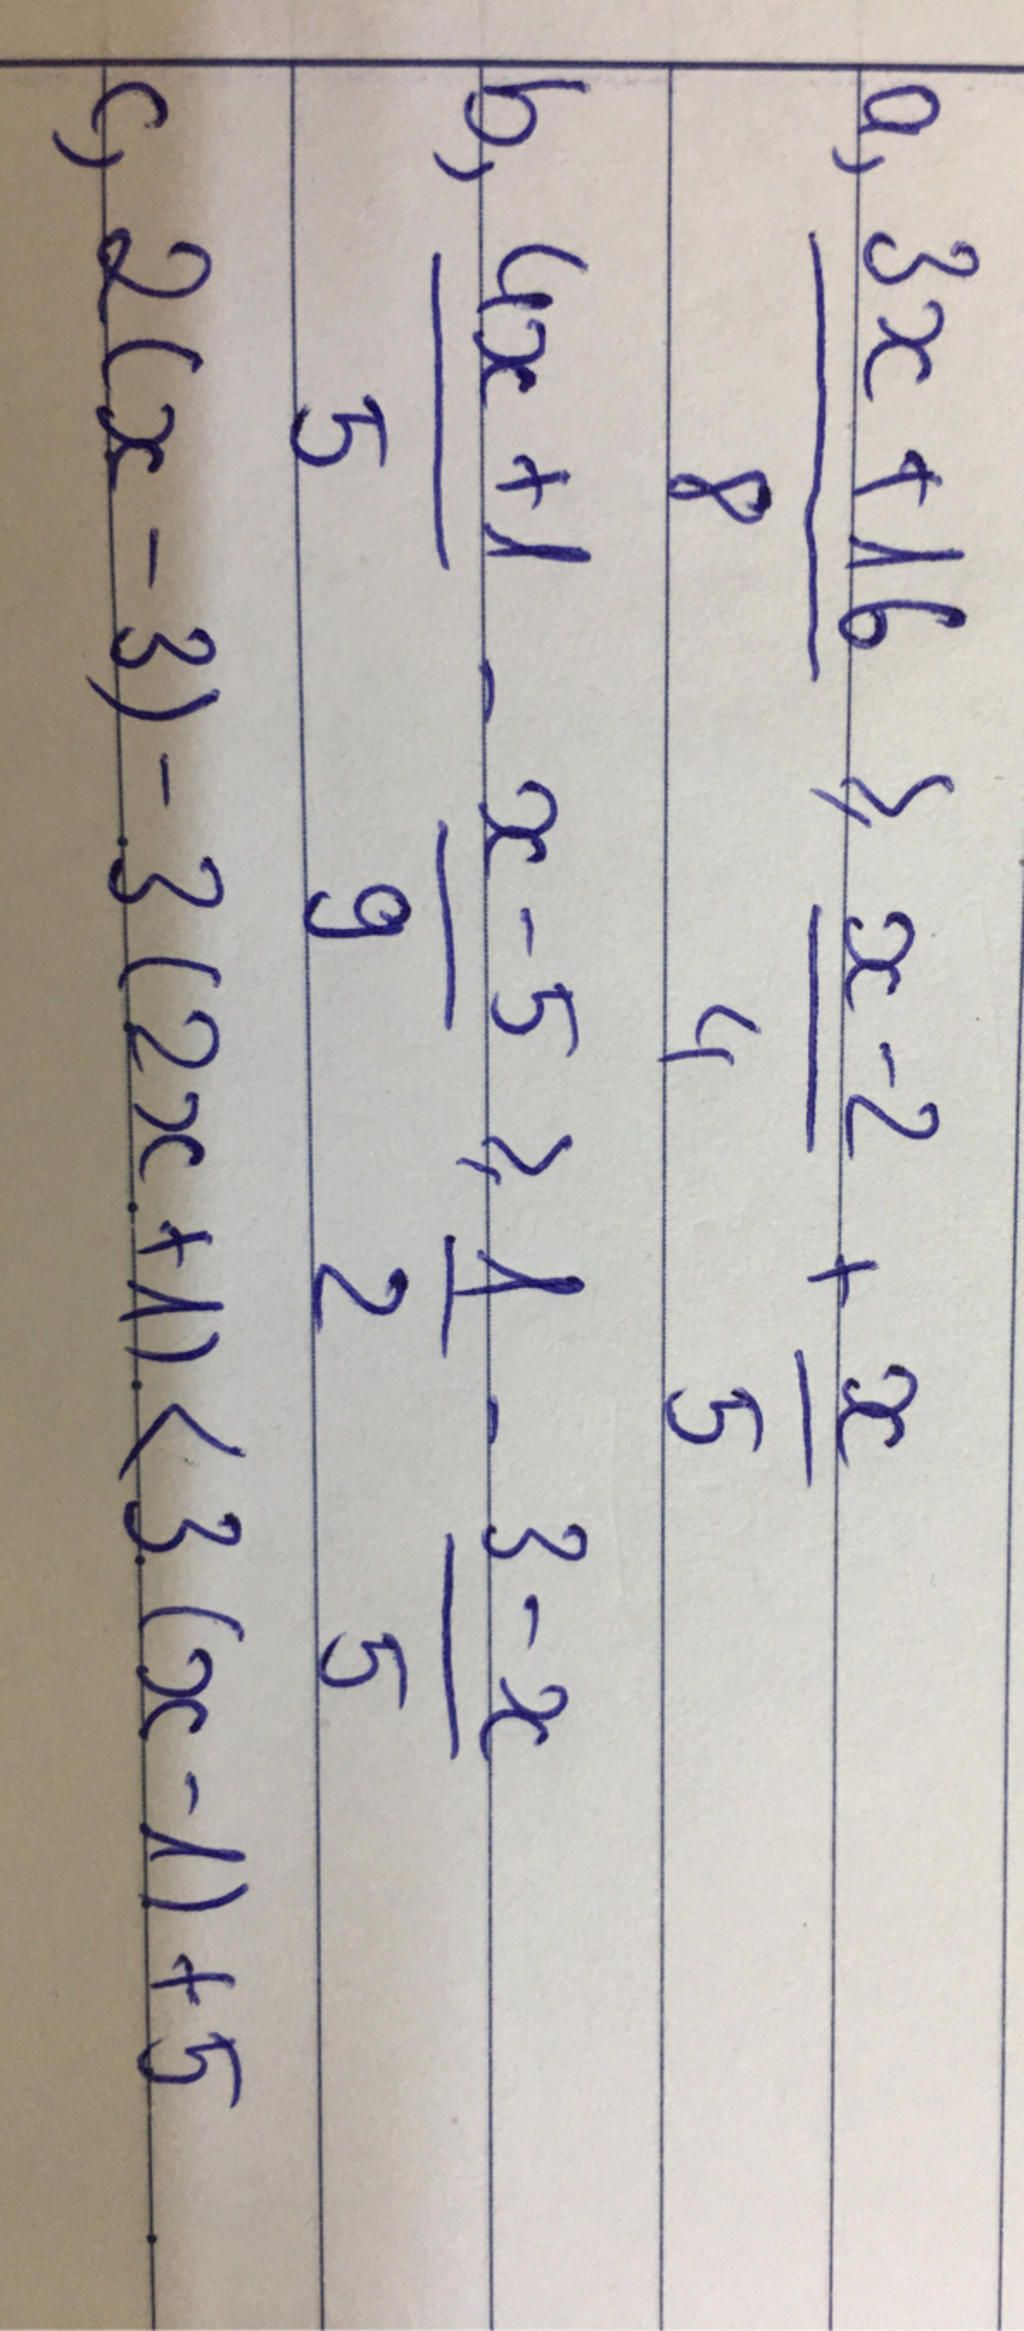 a, 3x + 16 / 8 ⩾ x - 2 / 4 + x / 5
b, 4x + 1 / 5 - x - 5 / 9 ⩾ 1 / 2 - 3 - x / 5
c, 2(x - 3) - 3(2x + 1) < 3(x - 1) + 5